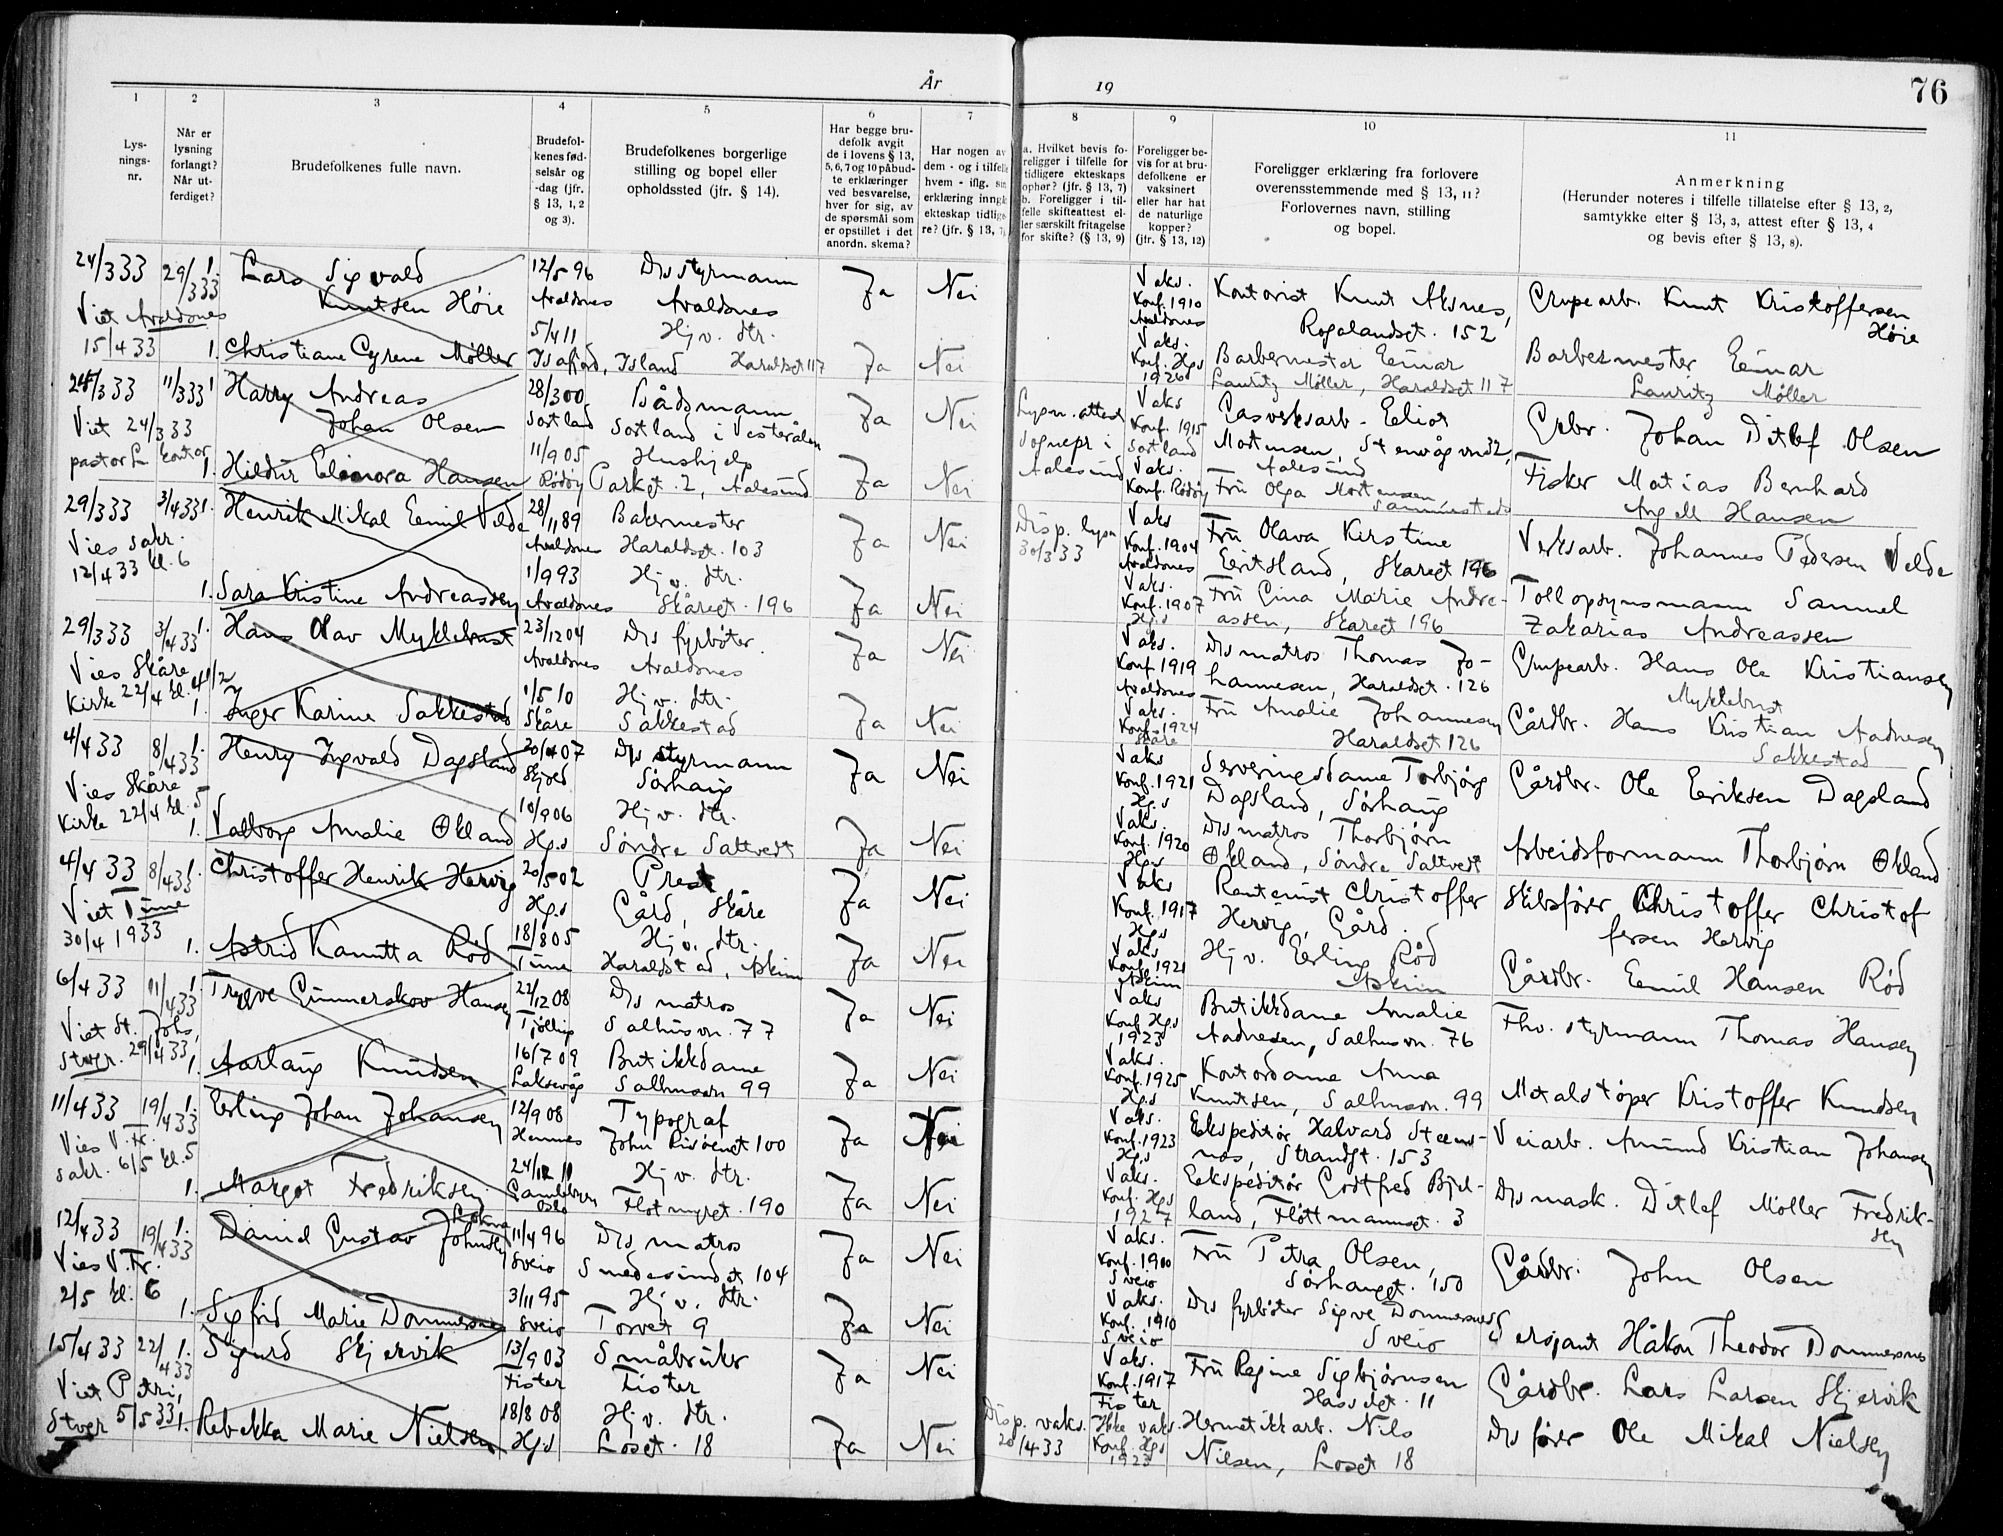 År 19
76
1 2 3 4 5 6 7 8 9 10 11
Lys-
nings-
nr.
Når er
lysning
forlangt?
Når ut-
ferdiget?
Brudefolkenes fulle navn.
Brudefol-
kenes fød-
selsår og
-dag (jfr.
§ 13, 1, 2
og 3).
Brudefolkenes borgerlige
stilling og bopel eller
opholdssted (jfr. § 14).
Har begge bru-
defolk avgit
de i lovens § 13,
5, 6, 7 og 10 påbud-
te erklæringer
ved besvarelse,
hver for sig, av
de spørsmål som
er opstillet i det
anordn. skema?
Har nogen av
dem - og i tilfelle
hvem - iflg. sin
erklæring inngå
ekteskap tidlige-
re? (jfr. § 13, 7)
a. Hvilket bevis fo-
religger i tilfelle for
tidligere ekteskaps
ophør? (jfr. § 13, 7)
b. Foreligger i til-
felle skifteattest el-
ler særskilt fritagelse
for skifte? (§ 13, 9)
Foreligger be-
vis for at bru-
defolkene er
vaksinert
eller har hat
de naturlige
kopper?
(jfr. § 13, 12)
Foreligger erklæring fra forlovere
overensstemmende med § 13, 11?
Forlovernes navn, stilling
og bopel.
Anmerkning
(Herunder noteres i tilfelle tillatelse efter § 13, 2,
samtykke efter § 13, 3, attest efter § 13, 4
og bevis efter § 13, 8).
24/3 33 29/3 33 1. Lars Sigvald 12/5 96 Ds styrmann Ja Nei Vaks. Kontorist Knut Aksnes, Grupearb. Knut Kristoffersen
Viet Avaldsnes Knutsen Høie Avaldsnes Avaldsnes Konf. 1910 Avaldsnes Rogalandsgt. 152 Høie
15/4 33 1. Christiane Cyrene Møller 5/4 11 Hj v. dtr. Ja Nei Vaks. Barbermester Einar Barbermester Einar
Isafjord, Island Haraldsgt 117 Konf. Hgs 1926 Lauritz Møller, Haraldsgt 117 Lauritz Møller
24/3 33 11/3 33 1 Harry Andreas 28/3 00 Bådsmann Ja Nei Lysn. attest Vaks Gasverksarb. Eliot Grbr. Johan Ditlef Olsen
Viet 24/3 33 Johan Olsen Sortland Sortland i Vesterålen Sognepr i Konf. 1915 Sortland Mortensen, Stenvågvnd 32,
pastor L. kontor 1. Hildur Elionora Hansen 11/9 05 Hushjelp Ja Nei Aalesund Vaks. Aalesund Fisker Matias Bernhard
Rødøy Parkgt. 2, Aalesund Konf. Rødøy Frü Olga Mortensen, sammesteds Angell Hansen
29/3 33 3/4 33 1. Henrik Mikal Emil Velde 28/11 89 Bakermester Ja Nei Disp. lysn Vaks Frü Olava Kirstine Verksarb. Johannes Pedersen Velde
Vies sakr. Avaldsnes Haraldsgt. 103 30/3 33 Konf. 1904 Avaldsnes Eeitsland, Skåregt 196
12/4 33 kl. 6 1. Sara Kristine Andreassen 1/9 93 Hj v. dtr. Ja Nei Vaks. Frü Gina Marie Andre- Tollopsynsmann Samuel
Avaldsnes Skåregt. 196 Konf. 1907 Hgs assen, Skåregt 196 Zakarias Andreassen
29/3 33 3/4 33 1. Hans Olav Myklebust 23/12 04 Ds fyrbøter Ja Nei Vaks. Ds matros Thomas Jo- Grupearb. Hans Ole Kristiansen
Vies Skåre Avaldsnes Avaldsnes Konf. 1919 Avaldsnes hannesen, Haraldsgt. 126 Myklebust
Kirke 22/4 kl. 4 1/2 1. Inger Karine Sakkestad 1/5 10 Hj v. dtr. Ja Nei Vaks. Frü Amalie Johannesen Gårdbr. Hans Kristian Aadnesen
Skåre Sakkestad Konf. 1924 Skåre Haraldsgt 126 Sakkestad
4/4 33 8/4 33 1. Henry Ingvald Dagsland 20/4 07 Ds styrmann Ja Nei Vaks Serveringsdame Torbjørg Gårdbr. Ole Eeriksen Dagsland
Vies Skåre Skjold Sørhaug Konf. 1921 Hgs Dagsland, Sørhaug
Kirke 22/4 kl. 5 1. Valborg Amalie Økland 10/9 06 Hj v. dtr. Ja Nei Vaks. Ds matros Thorbjørn Arbeidsformann Thorbjørn Økland
Hgs Søndre Saltveit Konf. 1920 Hgs Økland, Søndre Saltveit
4/4 33 8/4 33 1. Christoffer Henrik Hervig 20/5 02 Prest Ja Nei Vaks Rentenist Christoffer Skibsfører Christoffer Christof
Viet Time Hgs Gård, Skåre Konf. 1917 Hgs Hervig, Gård. fersen Hervig
30/4 1933 1. Astrid Kanutta Rød 18/8 05 Hj v. dtr. Ja Nei Vaks Hj v. Erling Rød Gårdbr. Eemil Hansen Rød
Time Haraldstad, Askim Konf. 1921 Askim Askim
6/4 33 11/4 33 1 Trygve Gunnerskov Hansen 22/12 08 Ds matros Ja Nei Vaks Butikkdame Amalie Fhv. styrmann Thomas Hansen
Viet St. Johs, Tjølling Salhusvn. 77 Konf. Hgs 1923 Aadnesen, Salhusvn. 76
Stvgr. 29/4 33 1. Aarlaug Knudsen 16/7 09 Butikkdame Ja Nei Vaks. Kontordame Anna Metalstøper Kristoffer Knudsen
Laksevåg Salhusvn 99 Konf. 1925 Hgs Knutsen, Salhusvn. 99
11/4 33 19/4 33 1. Erling Johan Johansen 12/9 08 Typograf Ja Nei Vaks. Ekspeditør Halvard Steens- Veiarb. Amund Kristian Johansen
Vies V.Fr. Hemnes John Risøensgt 100 Konf. 1923 Hgs nes, Strandgt. 153
sakr. 6/5 kl. 5 1. Margot Fredriksen 24/12 11 Hj v. dtr. Ja Nei Vaks. Ekspeditør Godtfred Bjel- Ds mask. Ditlef Møller Fredrik-
Gamlebyen Oslo Flotmyrgt. 190 Konf. Hgs 1927 land, Fløttmannsgt. 3 sen
12/4 33 19/4 33 1. Daniel Gustav Johnsen 11/4 96 Ds matros Ja Nei Vaks. Frü Petra Olsen, Gårdbr. John Olsen
Vies V.Fr. Sveio Smedasundet 104 Konf. 1900 Sveio Sørhauggt. 150
2/5 kl. 6 1. Sigfrid Marie Dommersnes 3/11 95 Hj v. dtr. Ja Nei Vaks. Ds fyrbøter Sigve Dommersnes Sersjant Håkon Theodor Dommersnes
Sveio Torvet 9 Konf. 1910 Sveio Sveio
15/4 33 22/4 33 1. Sigurd Skjervik 13/9 03 Småbruker Ja Nei Vaks. Frü Regine Sigbjørnsen Gårdbr. Lars Larsen Skjervik
Viet Petri, Fister Fister Konf. 1917 Fister Hassелgt. 11
Stvgr 5/5 33 1. Rebekka Marie Nielsen 18/8 08 Hj v. dtr. Ja Nei Disp. vaks. Ikke vaks. Hermetikkarb. Nils Ds fører Ole Mikal Nielsen
Hgs Losgt. 18 20/4 33 Konf. Hgs 1923 Nilsen, Losgt 18